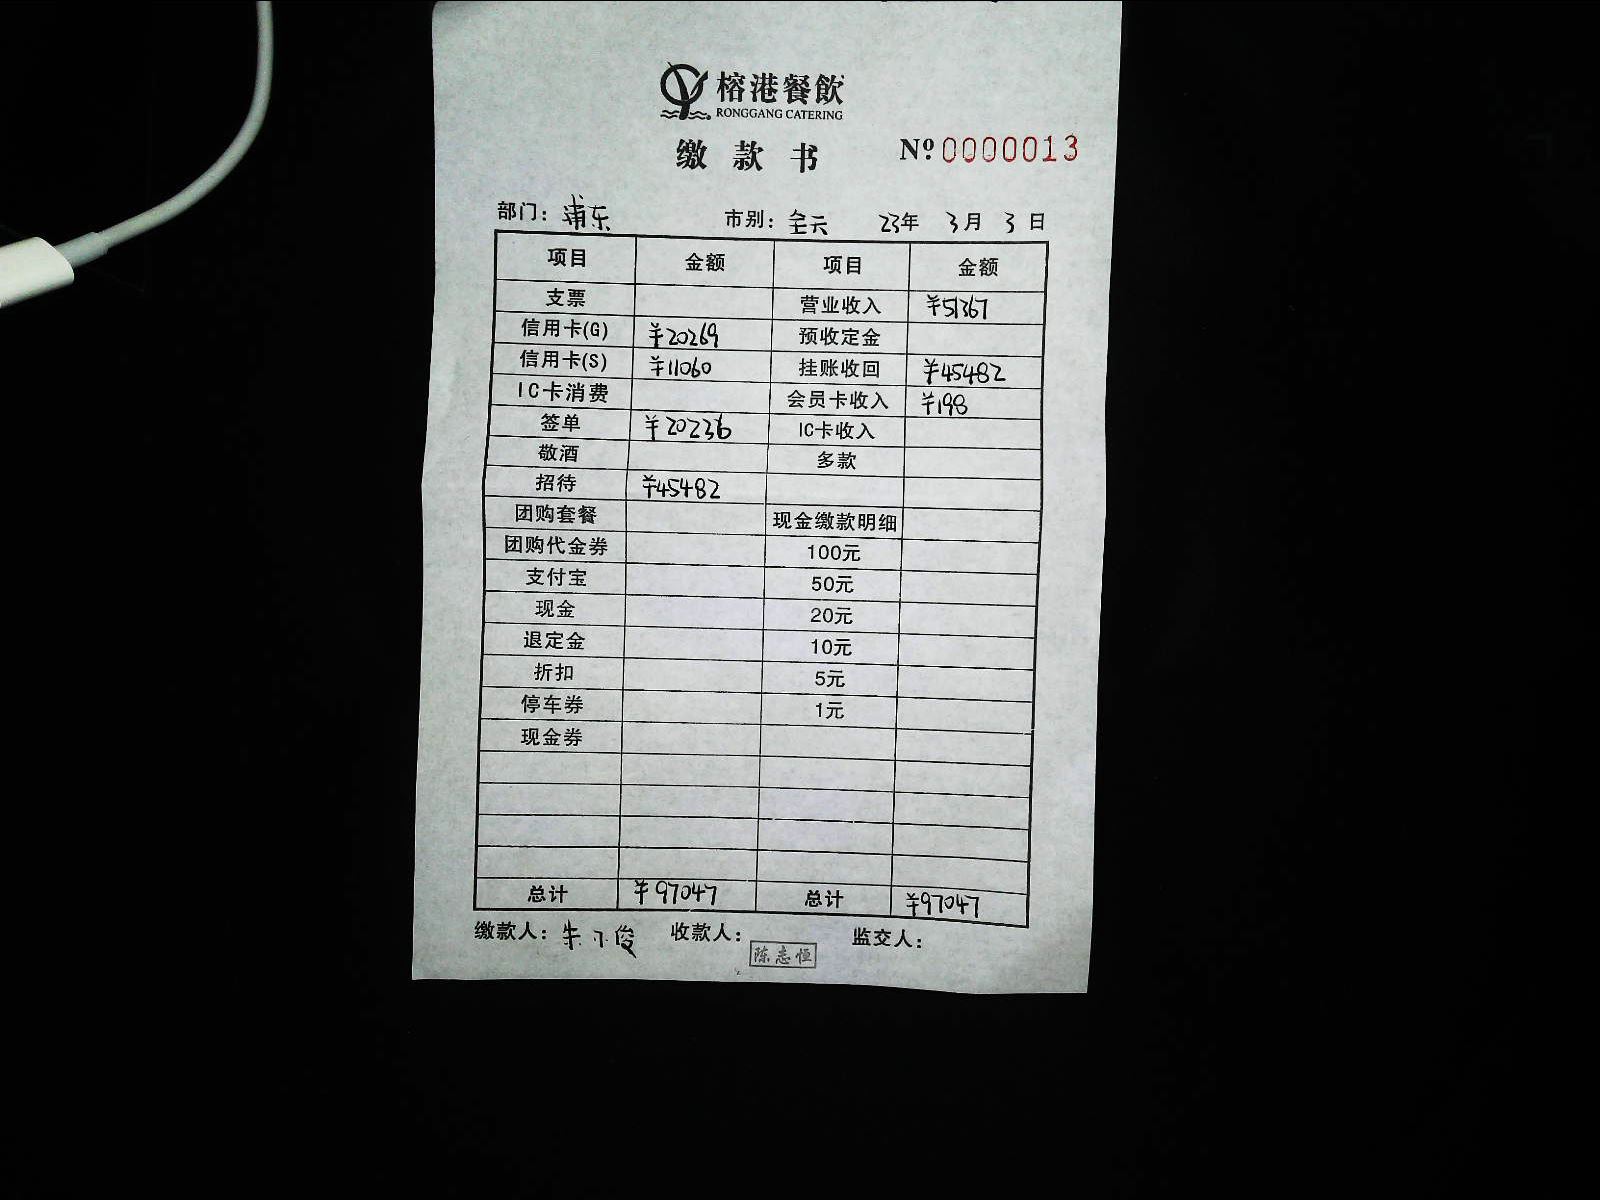 榕港餐飲
RONGGANG CATERING
缴款书 Nº0000013
部门：浦东 市别：全天 23年 3月 3日
项目 金额 项目 金额
支票 营业收入 ¥51367
信用卡(G) ¥20269 预收定金
信用卡(S) ¥11060 挂账收回 ¥45482
IC卡消费 会员卡收入 ¥198
签单 ¥20236 IC卡收入
敬酒 多款
招待 ¥45482
团购套餐 现金缴款明细
团购代金券 100元
支付宝 50元
现金 20元
退定金 10元
折扣 5元
停车券 1元
现金券
总计 ¥97047 总计 ¥97047
缴款人：朱 俊 收款人： 监交人：
陈志恒